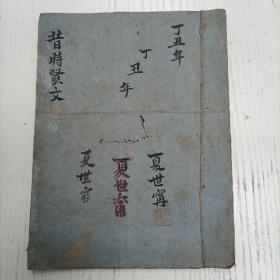 丁丑年
丁丑年
昔時賢文
夏世寗
夏世
夏世